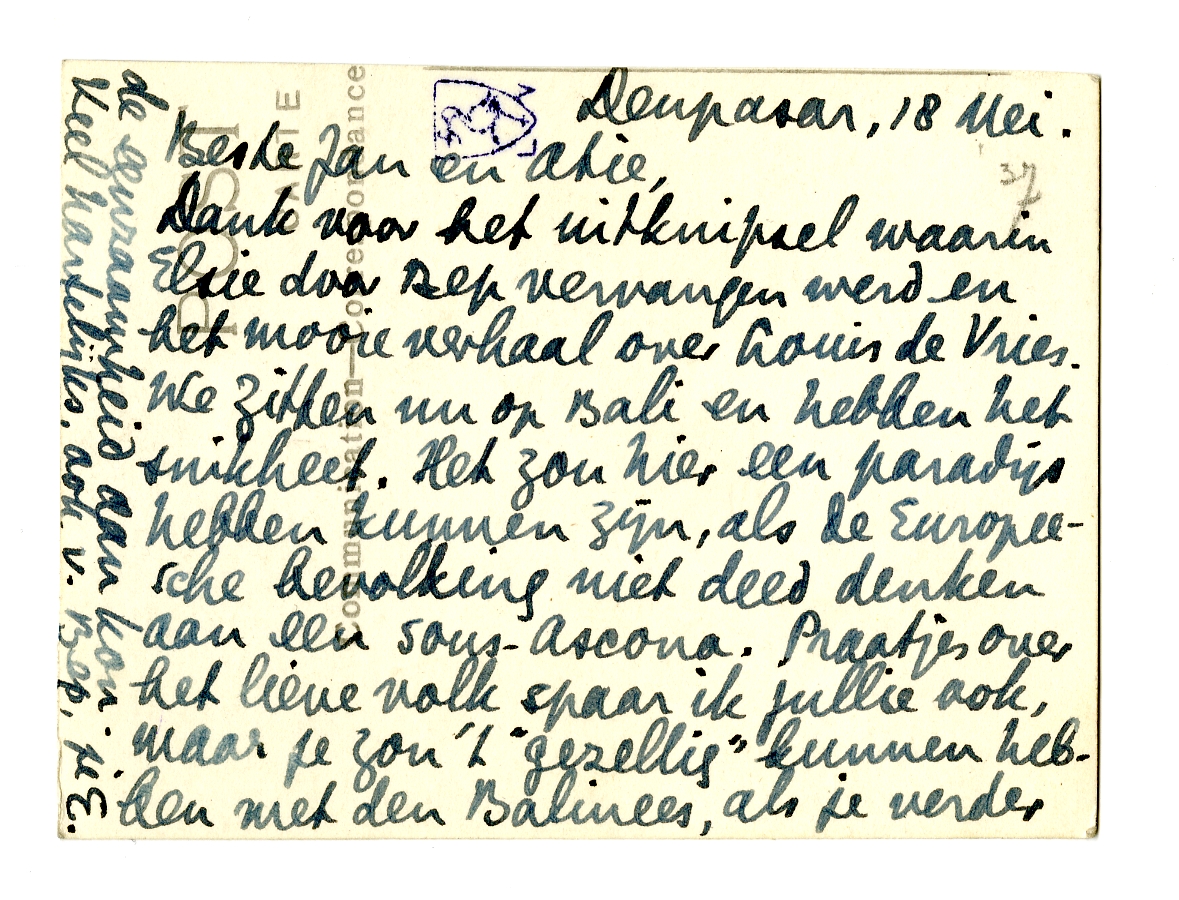 Denpasar, 18 Mei.
37
Beste Jan en Atie,
Dank voor het uitknipsel waarin
Elsie door Bep vervangen werd en
het mooie verhaal over Louis de Vries.
We zitten nu op Bali en hebben het
snikheet. Het zou hier een paradijs
hebben kunnen zijn, als de Europee-
sche bevolking niet deed denken
aan een sous-Ascona. Praatjes over
het lieve volk spaar ik jullie ook,
maar je zou 't "gezellig" kunnen heb-
ben met den Balinees, als je verder
de eenzaamheid aan kon.
Veel hartelijks, ook v. Bep, je E.
POST
CARTE
Communication—Correspondance